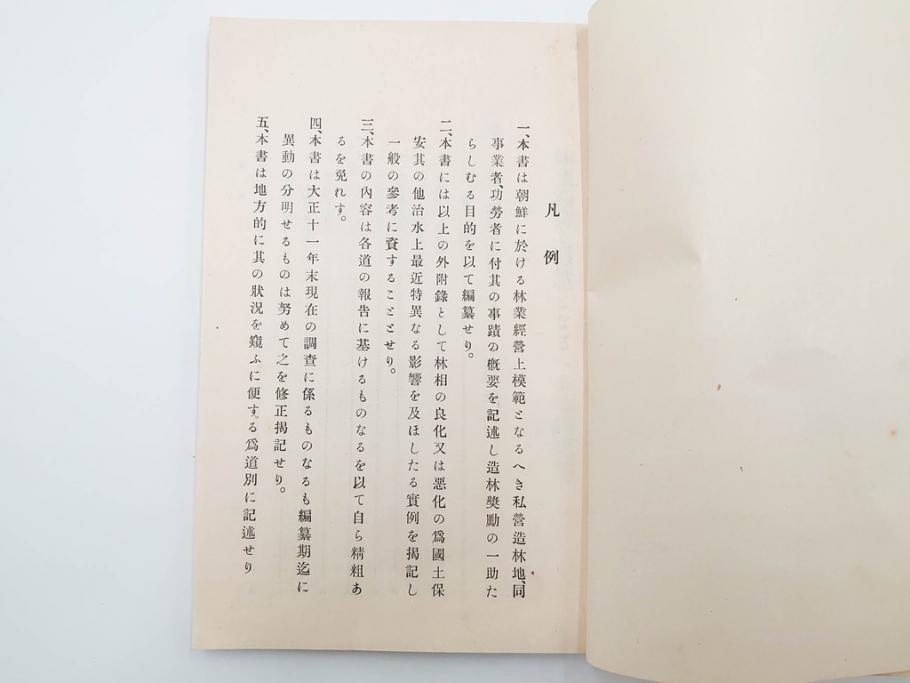 凡例
一、本書は朝鮮に於ける林業經營上模範となるへき私營造林地、同
事業者、功勞者に付其の事蹟の概要を記述し造林奬勵の一助た
らしむる目的を以て編纂せり。
二、本書には以上の外附錄として林相の良化又は惡化の爲國土保
安其の他治水上最近特異なる影響を及ほしたる實例を揭記し
一般の參考に資することとせり。
三、本書の內容は各道の報吿に基けるものなるを以て自ら精粗あ
るを免れす。
四、本書は大正十一年末現在の調査に係るものなるも編纂期迄に
異動の分明せるものは努めて之を修正揭記せり。
五、本書は地方的に其の狀況を窺ふに便する爲道別に記述せり